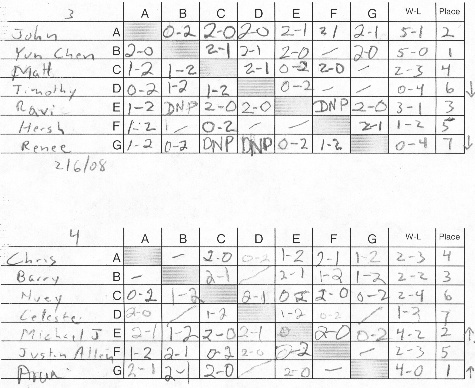 3 A B C D E F G W-L Place
John A 0-2 2-0 2-0 2-1 2-1 2-1 5-1 2
Yun Chen B 2-0 2-1 2-1 2-0 — 2-0 5-0 1
Matt C 1-2 1-2 2-1 0-2 2-0 — 2-3 4
Timothy D 0-2 1-2 1-2 0-2 — — 0-4 6 ↓
Ravi E 1-2 DNP 2-0 2-0 DNP 2-0 3-1 3
Hersh F 1-2 / 0-2 — — 2-1 1-2 5
Renee G 1-2 0-2 DNP DNP 0-2 1-2 0-4 7 ↓
2/6/08
4 A B C D E F G W-L Place
Chris A — 2-0 0-2 1-2 2-1 1-2 2-3 4
Barry B — 2-1 / 2-1 1-2 1-2 2-2 3
Nuey C 0-2 1-2 2-1 0-2 2-0 0-2 2-4 6
Celeste D 2-0 / 1-2 1-2 0-2 / 1-2 7
Michael J E 2-1 1-2 2-0 2-1 2-0 0-2 4-2 2 ↑
Justin Allen F 1-2 2-1 0-2 2-0 0-2 — 2-3 5
G 2-1 2-1 2-0 / 2-0 — 4-0 1